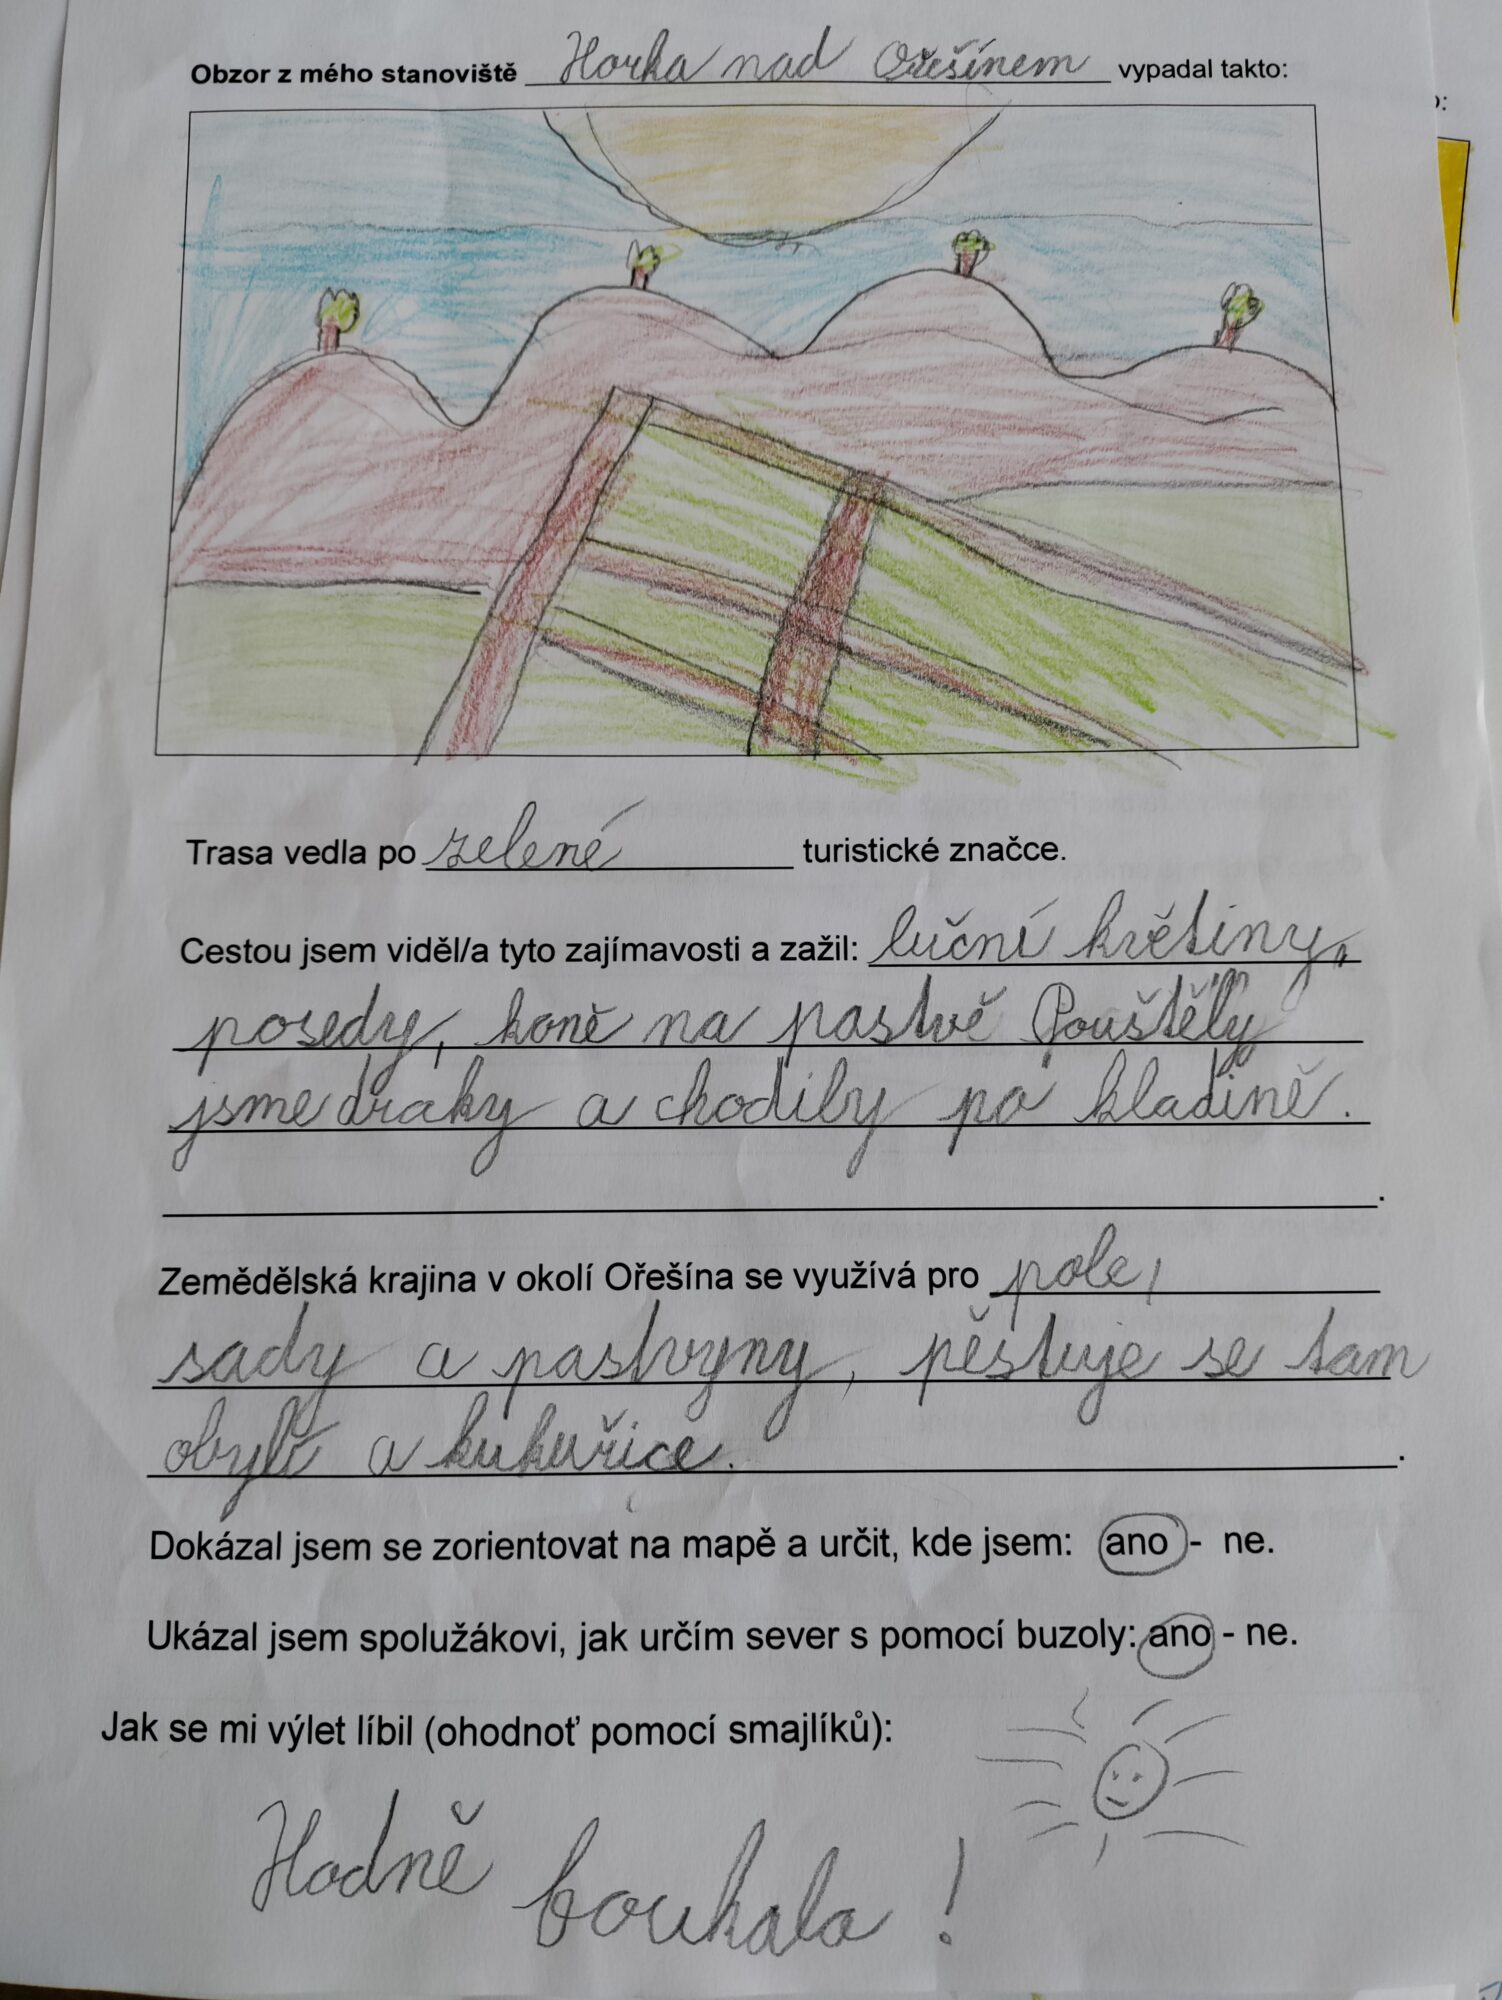 Obzor z mého stanoviště Horka nad Ořešínem vypadal takto:
Trasa vedla po zelené turistické značce.
Cestou jsem viděl/a tyto zajímavosti a zažil: luční květiny,
posedy, koně na pastvě Pouštěly
jsme draky a chodily po kladině.
.
Zemědělská krajina v okolí Ořešína se využívá pro pole,
sady a pastvyny, pěstuje se tam
obylí a kukuřice. .
Dokázal jsem se zorientovat na mapě a určit, kde jsem: ano - ne.
Ukázal jsem spolužákovi, jak určím sever s pomocí buzoly: ano - ne.
Jak se mi výlet líbil (ohodnoť pomocí smajlíků):
Hodně foukalo !